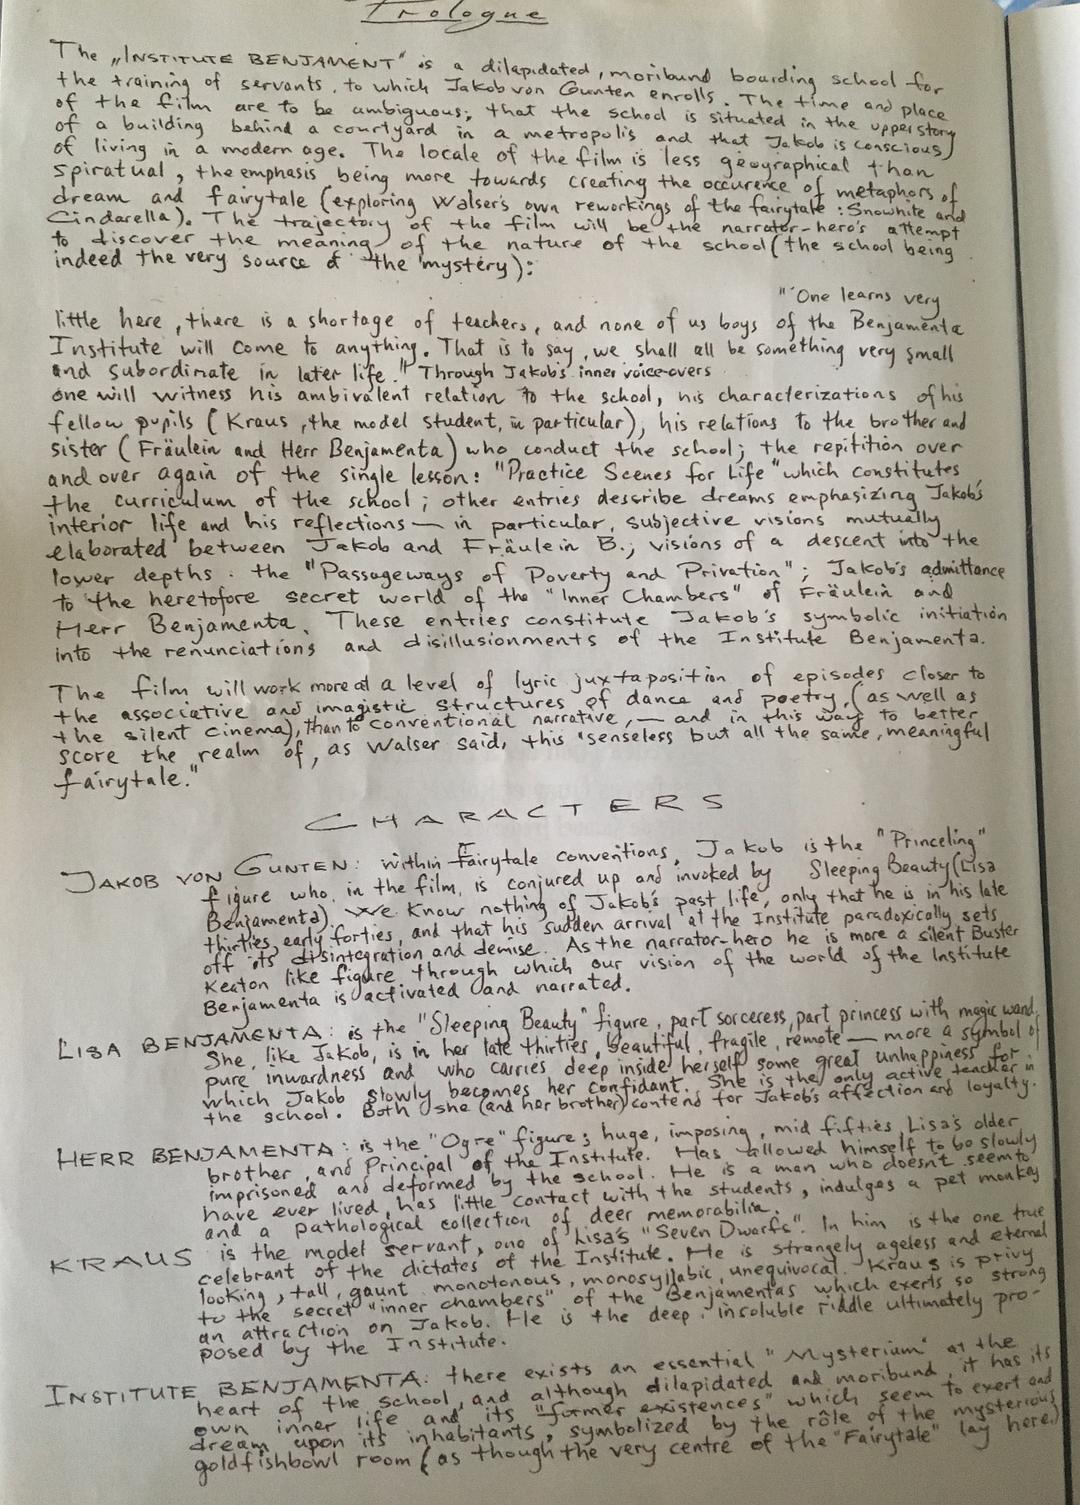 Prologue
The „INSTITUTE BENJAMENT" is a dilapidated, moribund boarding school for
the training of servants, to which Jakob von Gunten enrolls. The time and place
of the film are to be ambiguous; that the school is situated in the upper story
of a building behind a courtyard in a metropolis and that Jakob is conscious
of living in a modern age. The locale of the film is less geographical than
spiratual, the emphasis being more towards creating the occurence of metaphors of
dream and fairytale (exploring Walser's own reworkings of the fairytale: Snowhite and
Cindarella). The trajectory of the film will be the narrator-hero's attempt
to discover the meaning of the nature of the school (the school being
indeed the very source of the mystery):
"'One learns very
little here, there is a shortage of teachers, and none of us boys of the Benjamenta
Institute will come to anything. That is to say, we shall all be something very small
and subordinate in later life." Through Jakob's inner voice-overs
one will witness his ambivalent relation to the school, his characterizations of his
fellow pupils (Kraus, the model student, in particular), his relations to the brother and
sister (Fräulein and Herr Benjamenta) who conduct the school; the repitition over
and over again of the single lesson: "Practice Scenes for Life" which constitutes
the curriculum of the school; other entries describe dreams emphasizing Jakob's
interior life and his reflections — in particular, subjective visions mutually
elaborated between Jakob and Fräulein B.; visions of a descent into the
lower depths: the "Passageways of Poverty and Privation"; Jakob's admittance
to the heretofore secret world of the "Inner Chambers" of Fräulein and
Herr Benjamenta. These entries constitute Jakob's symbolic initiation
into the renunciations and disillusionments of the Institute Benjamenta.
The film will work more at a level of lyric juxtaposition of episodes closer to
the associative and imagistic structures of dance and poetry, (as well as
the silent cinema), than to conventional narrative, — and in this way to better
score the realm of, as Walser said, this "senseless but all the same, meaningful
fairytale."
CHARACTERS
JAKOB VON GUNTEN: within Fairytale conventions, Jakob is the "Princeling"
figure who, in the film, is conjured up and invoked by Sleeping Beauty (Lisa
Benjamenta). We know nothing of Jakob's past life, only that he is in his late
thirties, early forties, and that his sudden arrival at the Institute paradoxically sets
off its disintegration and demise. As the narrator-hero he is more a silent Buster
Keaton like figure through which our vision of the world of the Institute
Benjamenta is activated and narrated.
LISA BENJAMENTA: is the "Sleeping Beauty" figure, part sorceress, part princess with magic wand.
She, like Jakob, is in her late thirties, beautiful, fragile, remote — more a symbol of
pure inwardness and who carries deep inside herself some great unhappiness for
which Jakob slowly becomes her confidant. She is the only active teacher in
the school. Both she (and her brother) contend for Jakob's affection and loyalty.
HERR BENJAMENTA: is the "Ogre" figure; huge, imposing, mid fifties, Lisa's older
brother, and Principal of the Institute. Has allowed himself to be slowly
imprisoned and deformed by the school. He is a man who doesn't seem to
have ever lived, has little contact with the students, indulges a pet monkey
and a pathological collection of deer memorabilia.
KRAUS is the model servant, one of Lisa's "Seven Dwarfs". In him is the one true
celebrant of the dictates of the Institute. He is strangely ageless and eternal
looking, tall, gaunt, monotonous, monosyllabic, unequivocal. Kraus is privy
to the secret "inner chambers" of the Benjamentas which exerts so strong
an attraction on Jakob. He is the deep, insoluble riddle ultimately pro-
posed by the Institute.
INSTITUTE BENJAMENTA: there exists an essential "Mysterium" at the
heart of the school, and although dilapidated and moribund, it has its
own inner life and its "former existences" which seem to exert and
dream upon its inhabitants, symbolized by the rôle of the mysterious
goldfishbowl room (as though the very centre of the "Fairytale" lay here.)